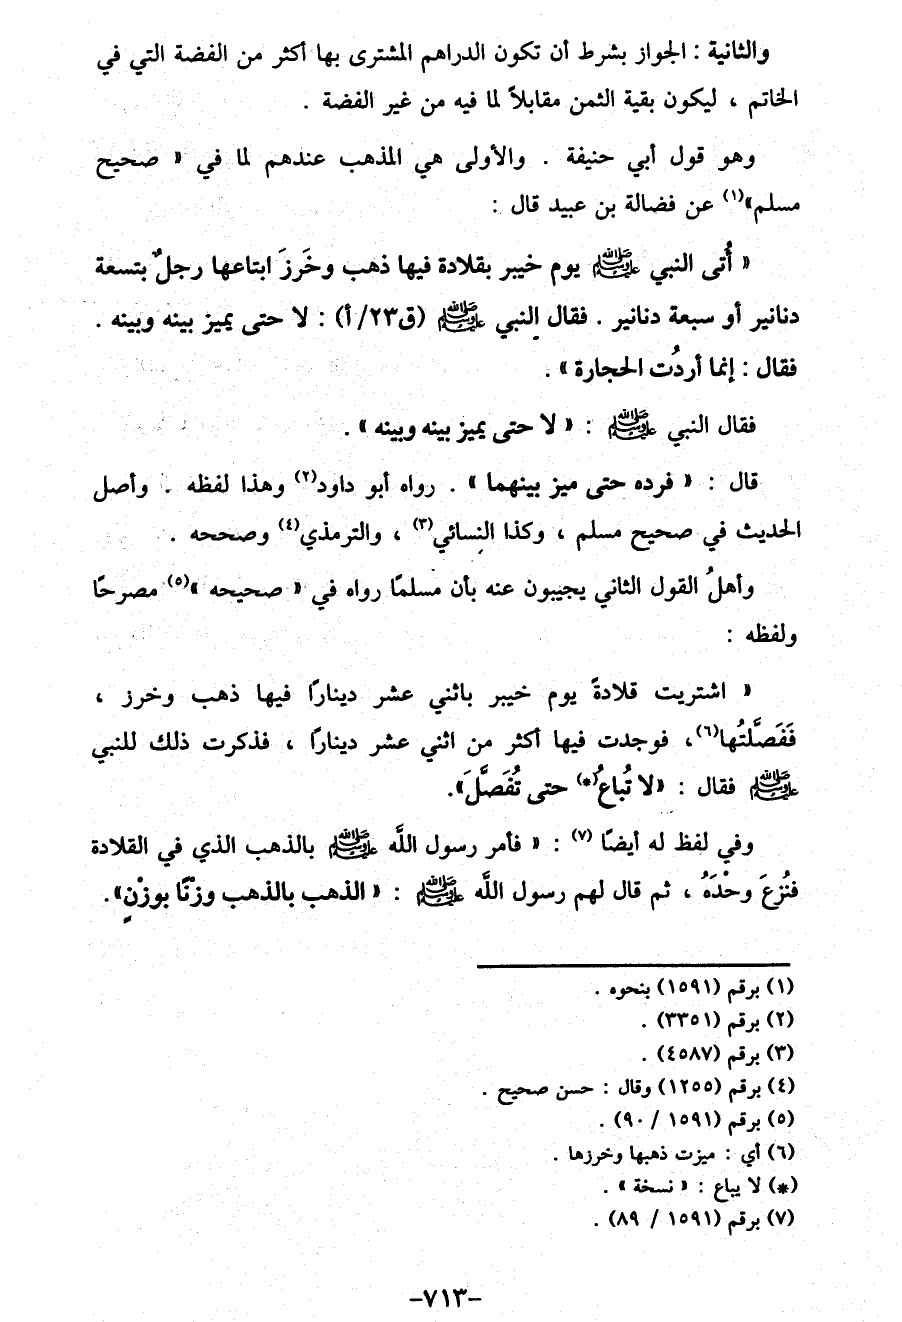 والثانية : الجواز بشرط أن تكون الدراهم المشترى بها أكثر من الفضة التي في
الخاتم ، ليكون بقية الثمن مقابلاً لما فيه من غير الفضة .
وهو قول أبي حنيفة . والأولى هي المذهب عندهم لما في « صحيح
مسلم»(١) عن فضالة بن عبيد قال :
« أُتى النبي ﷺ يوم خيبر بقلادة فيها ذهب وخَرزَ ابتاعها رجلٌ بتسعة
دنانير أو سبعة دنانير . فقال النبي ﷺ (ق٢٣/ أ) : لا حتى يميز بينه وبينه .
فقال : إنما أردُت الحجارة » .
فقال النبي ﷺ : « لا حتى يميز بينه وبينه » .
قال : « فرده حتى ميز بينهما » . رواه أبو داود(٢) وهذا لفظه . وأصل
الحديث في صحيح مسلم ، وكذا النسائي(٣) ، والترمذي(٤) وصححه .
وأهلُ القول الثاني يجيبون عنه بأن مسلمًا رواه في « صحيحه »(٥) مصرحًا
ولفظه :
« اشتريت قلادةً يوم خيبر باثني عشر دينارًا فيها ذهب وخرز ،
فَفَصَّلتُها(٦)، فوجدت فيها أكثر من اثني عشر دينارًا ، فذكرت ذلك للنبي
ﷺ فقال : «لا تُباعُ(*) حتى تُفَصَّلَ».
وفي لفظ له أيضًا (٧) : « فأمر رسول اللَّه ﷺ بالذهب الذي في القلادة
فنُزعَ وحْدَهُ ، ثم قال لهم رسول اللَّه ﷺ : « الذهب بالذهب وزنًا بوزْنٍ».
(١) برقم (١٥٩١) بنحوه .
(٢) برقم (٣٣٥١) .
(٣) برقم (٤٥٨٧) .
(٤) برقم (١٢٥٥) وقال : حسن صحيح .
(٥) برقم (١٥٩١ / ٩٠) .
(٦) أي : ميزت ذهبها وخرزها .
(*) لا يباع : « نسخة » .
(٧) برقم (١٥٩١ / ٨٩) .
-٧١٣-